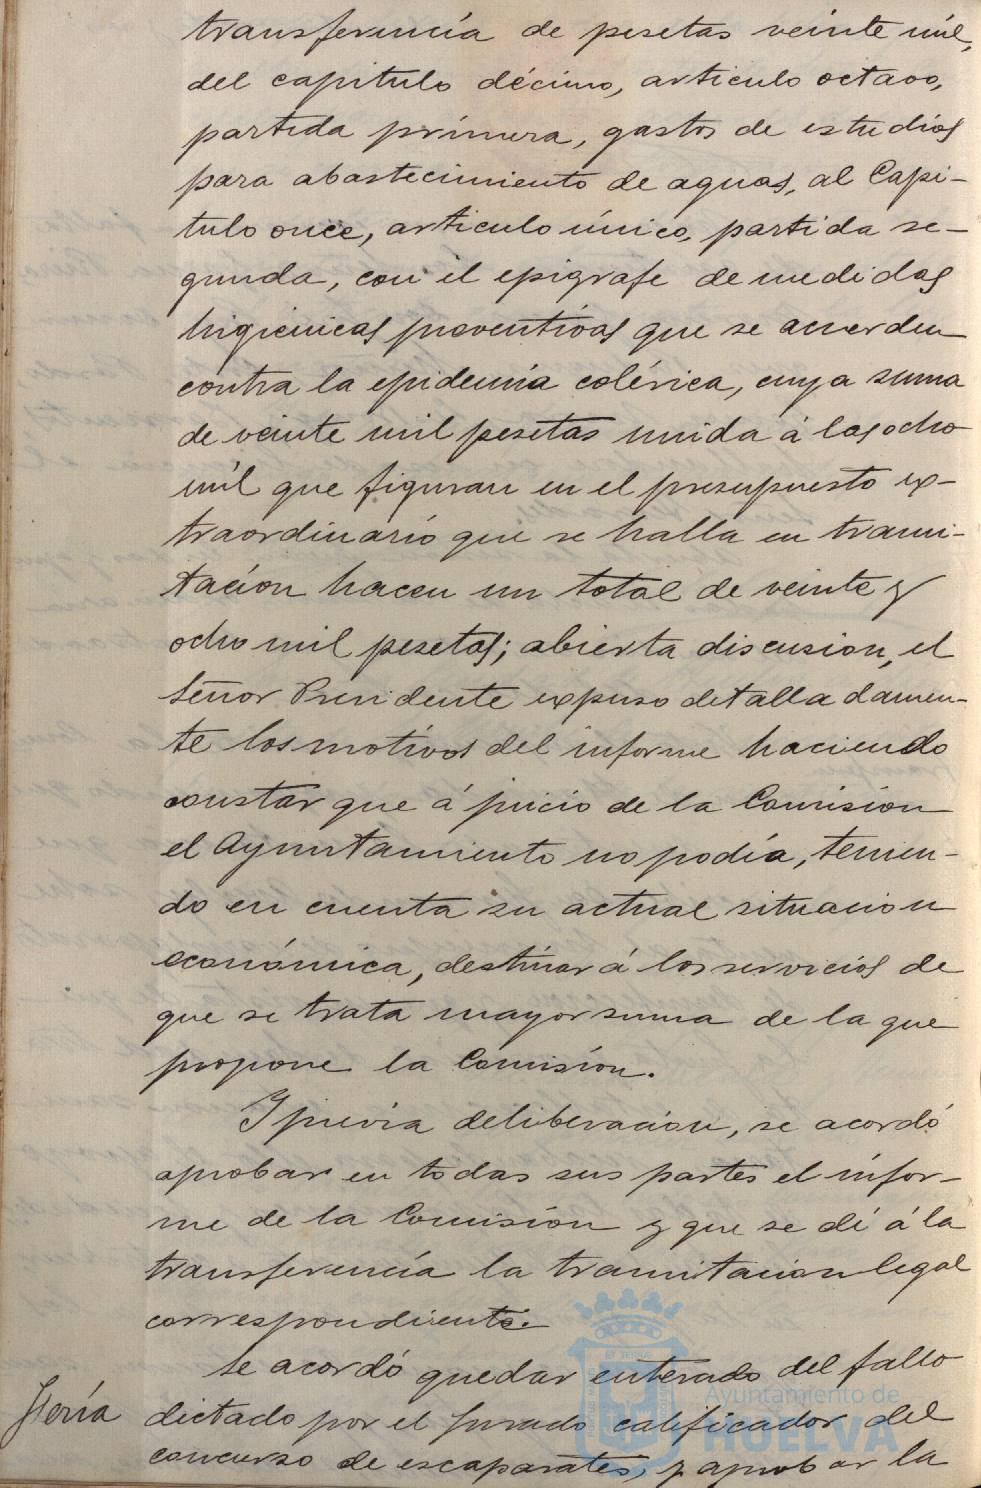 transferencia de pesetas veinte mil,
del capitulo décimo, articulo octavo,
partida primera, gastos de estudios
para abastecimiento de aguas, al Capi-
tulo once, articulo único, partida se-
gunda, con el epigrafe de medidas
higiénicas preventivas que se acuerden
contra la epidemia colérica, cuya suma
de veinte mil pesetas unida á las ocho
mil que figuran en el presupuesto ex-
traordinario que se halla en trami-
tación hacen un total de veinte y
ocho mil pesetas; abierta discusion, el
Señor Presidente expuso detalladamen-
te los motivos del informe haciendo
constar que á juicio de la Comision
el Ayuntamiento no podía, tenien-
do en cuenta su actual situacion
económica, destinar á los servicios de
que se trata mayor suma de la que
propone la Comisión.
Y previa deliberación, se acordó
aprobar en todas sus partes el infor-
me de la Comisión y que se dé á la
transferencia la tramitacion legal
correspondiente.
Se acordó quedar enterado del fallo
Feria
dictado por el Jurado calificador del
concurso de escaparates, y aprobar la
Ayuntamiento de
HUELVA